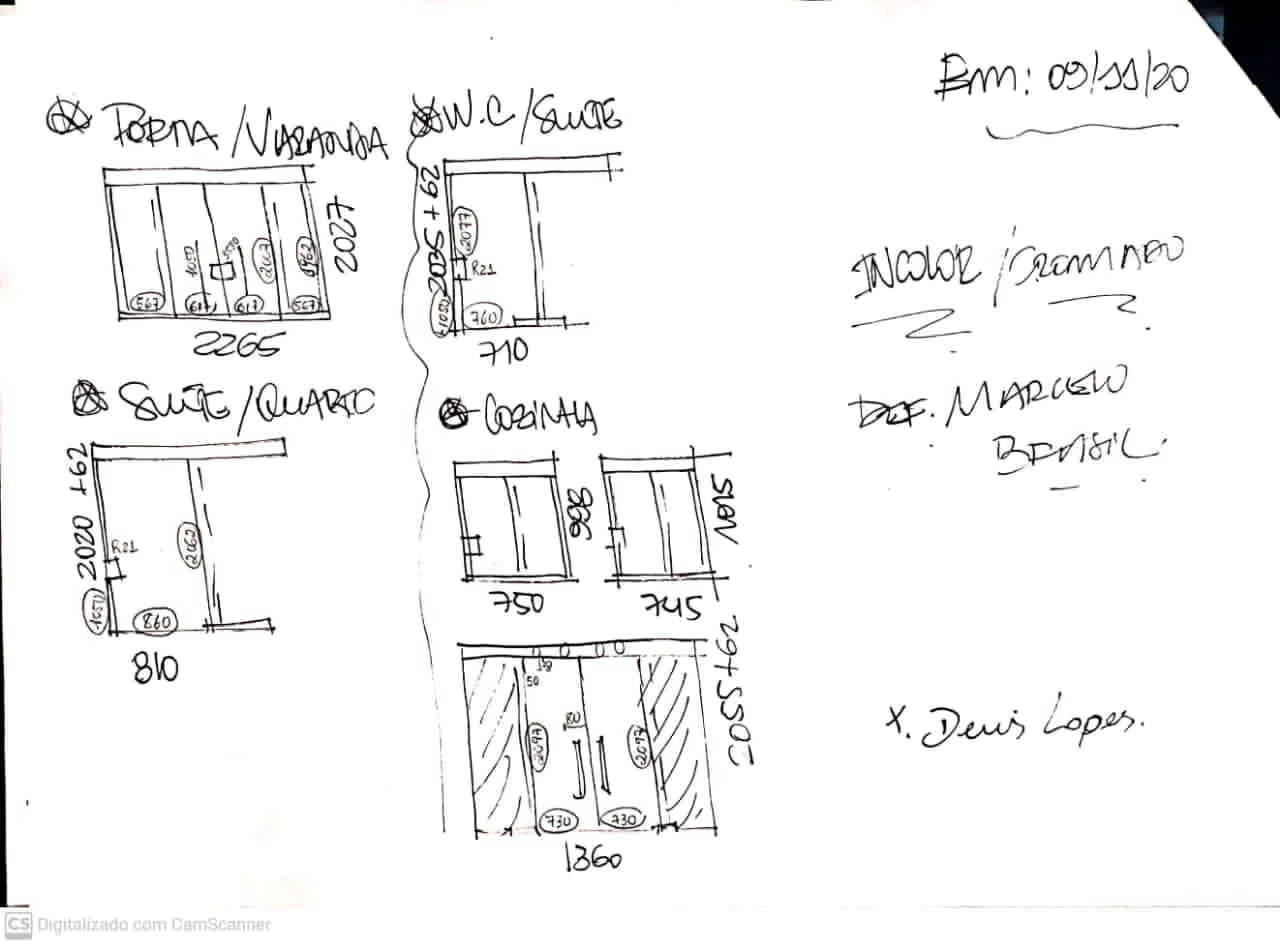 Em: 09/11/20
PORTA/VARANDA
2027
1050
2007
1962
567
617
617
567
2265
W.C/SUÍTE
2035 + 62
2077
R21
1050
760
710
INCOLOR/CROMADO
REF. MARCELO
BRASIL.
SUÍTE/QUARTO
2020 +62
R21
2062
1050
860
810
COZINHA
998
750
745
50
80
2097
2097
2055+62
730
730
1360
X. Denis Lopes.
CS Digitalizado com CamScanner